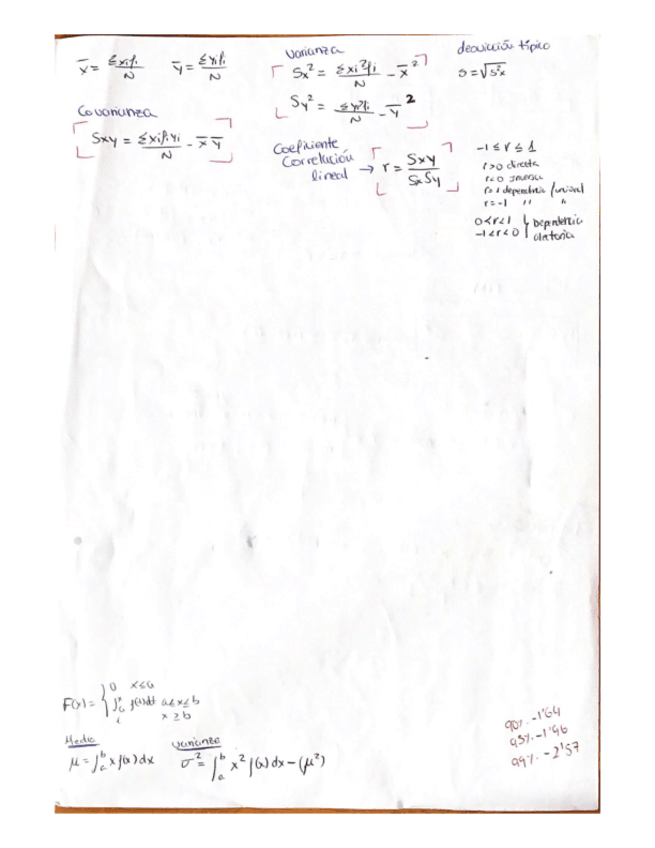 x̄ = Σxifi / N    ȳ = Σyifi / N
Covarianza
Sxy = Σxifiyi / N - x̄ ȳ
Varianza
Sx² = Σxi²fi / N - x̄²
Sy² = Σyi²fi / N - ȳ²
desviación típica
s = √s²x
Coeficiente
Correlación
lineal → r = Sxy / SxSy
-1 ≤ r ≤ 1
r>0 directa
r<0 inversa
r=1 dependencia funcional
r=-1 '' ''
0<r<1 } Dependencia
-1<r<0 } aleatoria
F(x) = { 0 x≤a
∫ₐˣ f(t)dt a≤x≤b
1 x≥b
Media
μ = ∫ₐᵇ x f(x) dx
Varianza
σ² = ∫ₐᵇ x² f(x) dx - (μ²)
90% - 1'64
95% - 1'96
99% - 2'57